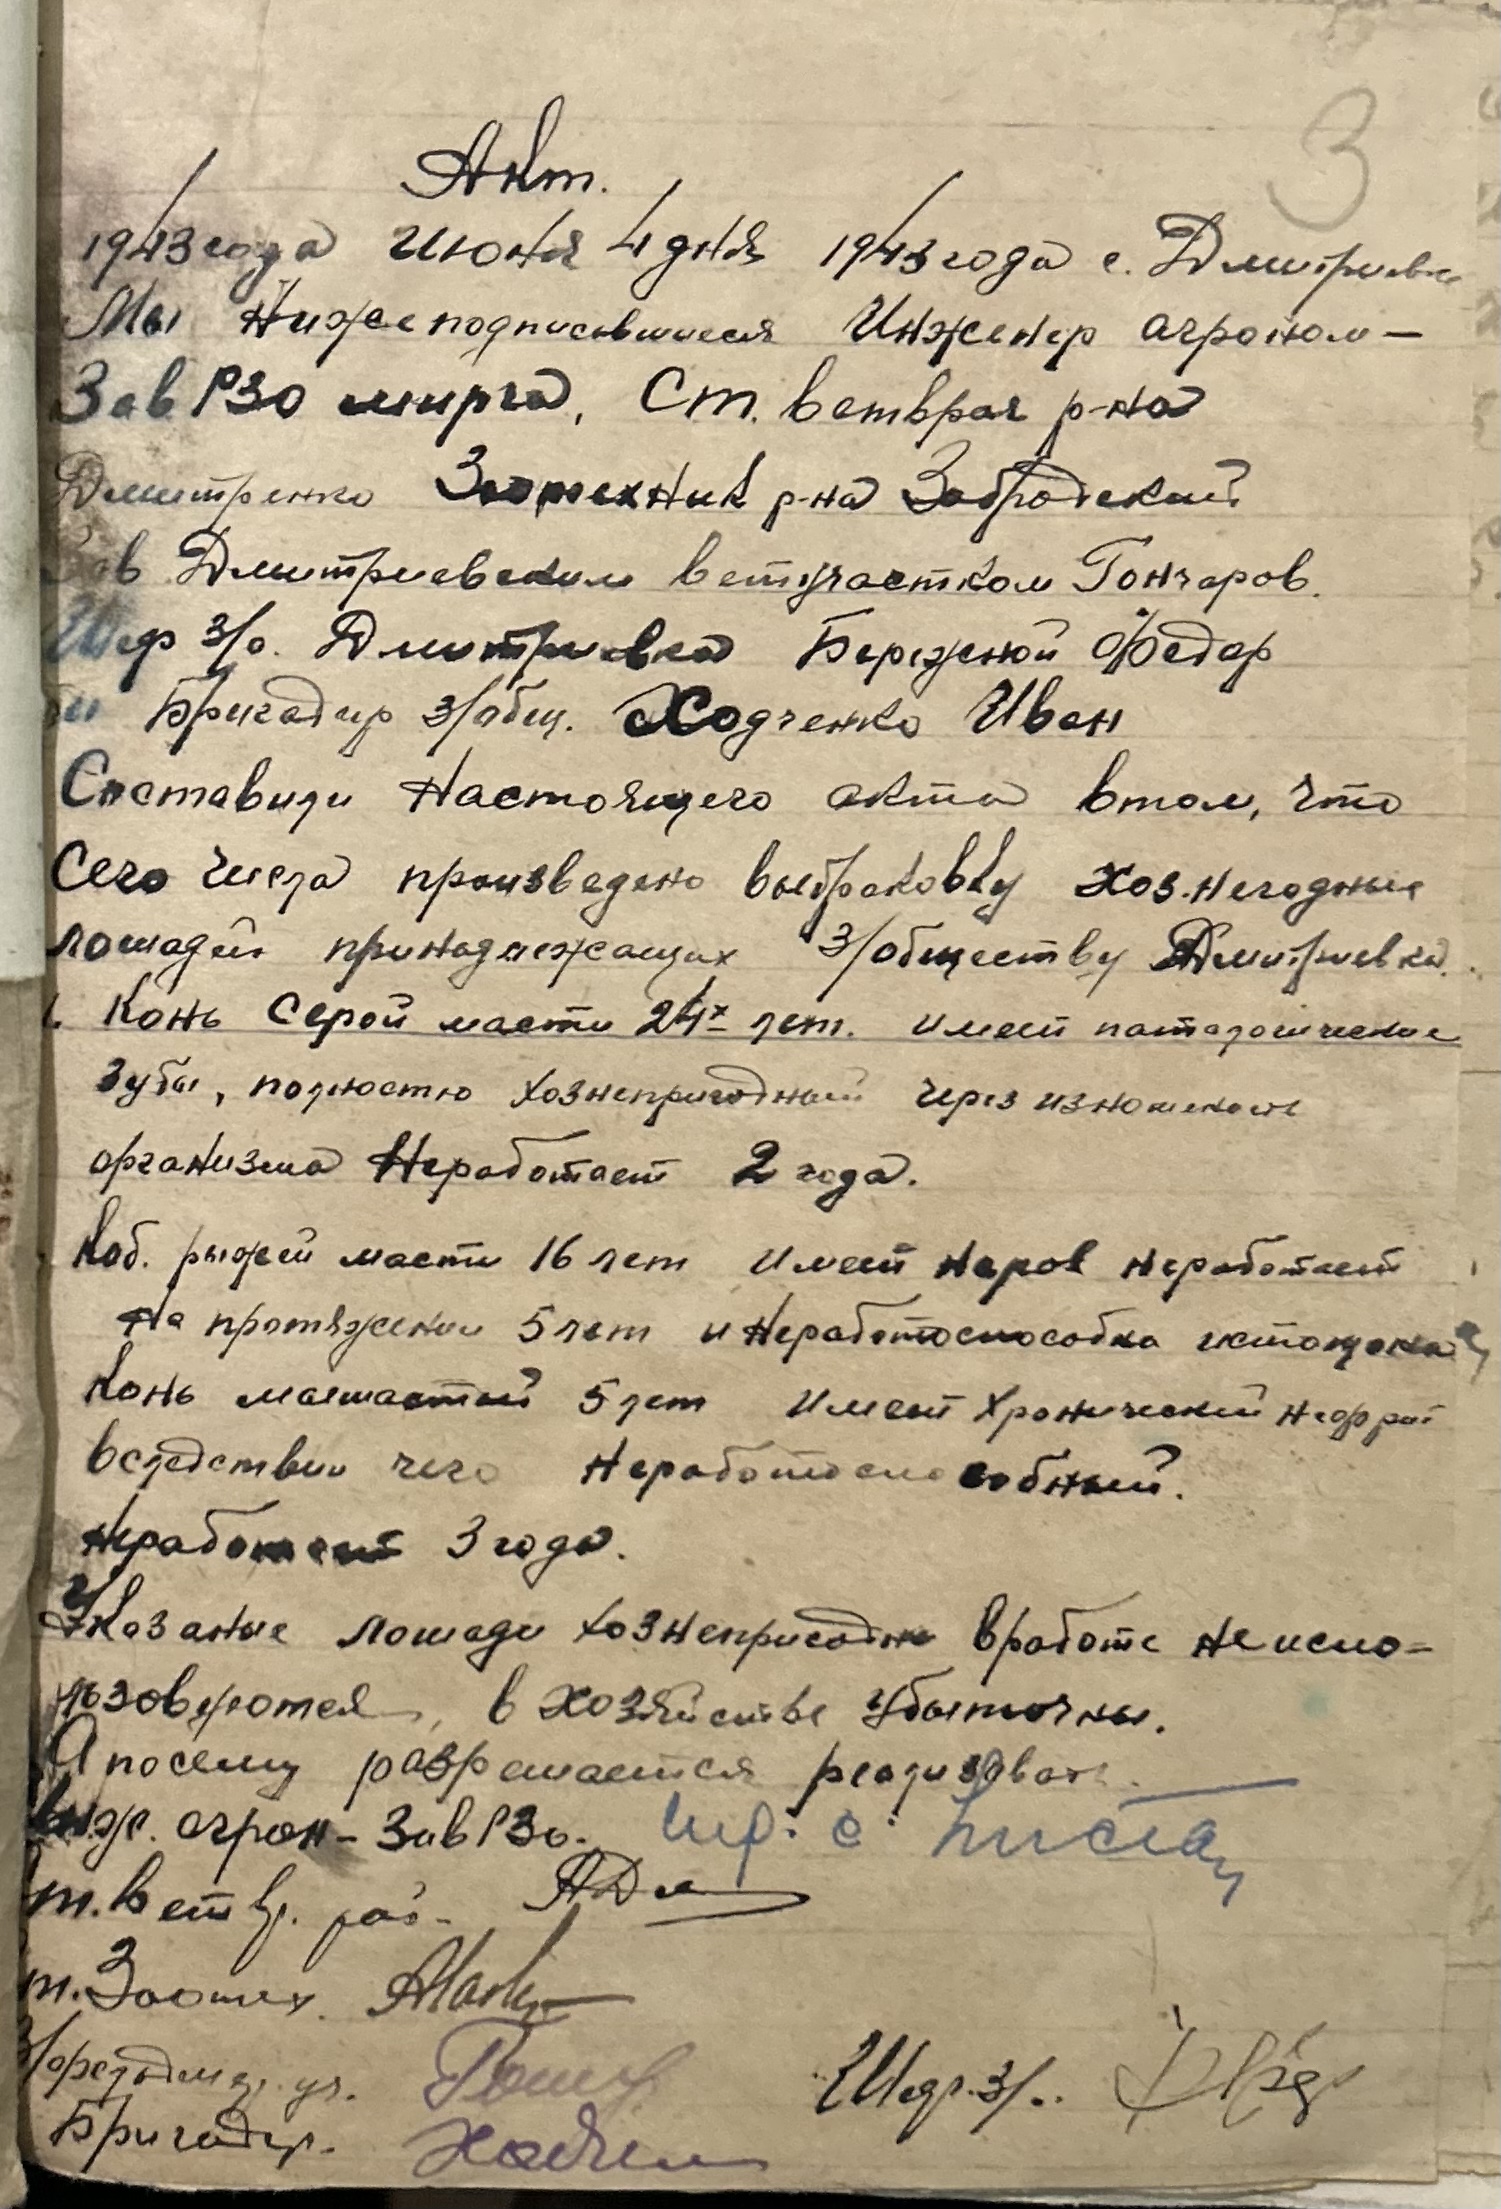 3
Акт.
1943 года Июня 4 дня 1943 года с. Дмитриевка
Мы Нижеподписавшиеся Инженер агроном –
Зав РЗО Ст. ветврач р-на
Дмитренко Зоотехник р-на Забродский
Зав Дмитриевским ветучастком Гончаров.
Шеф З/о. Дмитриевка Бережной Федор
Бригадир з/общ. Ходченко Иван
Составили Настоящего акта втом, что
Сего числа произведено выбраковку хоз.негодные
лошадей принадлежащих З/обществу Дмитриевка.
1. Конь Серой масти 24х лет. имеет патологические
зубы, полностью хознепригодный через
организма Неработает 2 года.
Коб. рыжей масти 16 лет имеет Неров неработает
На протяжении 5 лет и Неработоспособна истощена
Конь 5 лет имеет хронический нефрит
вследствии чего Неработоспособный.
Неработает 3 года.
Указаные лошади хознепригодны вработе не испо-
льзовуются, в хозяйстве убыточны.
А посему разрешается реализовать.
Инж. агрон – Зав РЗо.
т. Ветвр.
т. Зоотех.
уч.
Шеф. З/о.
Бригадир.